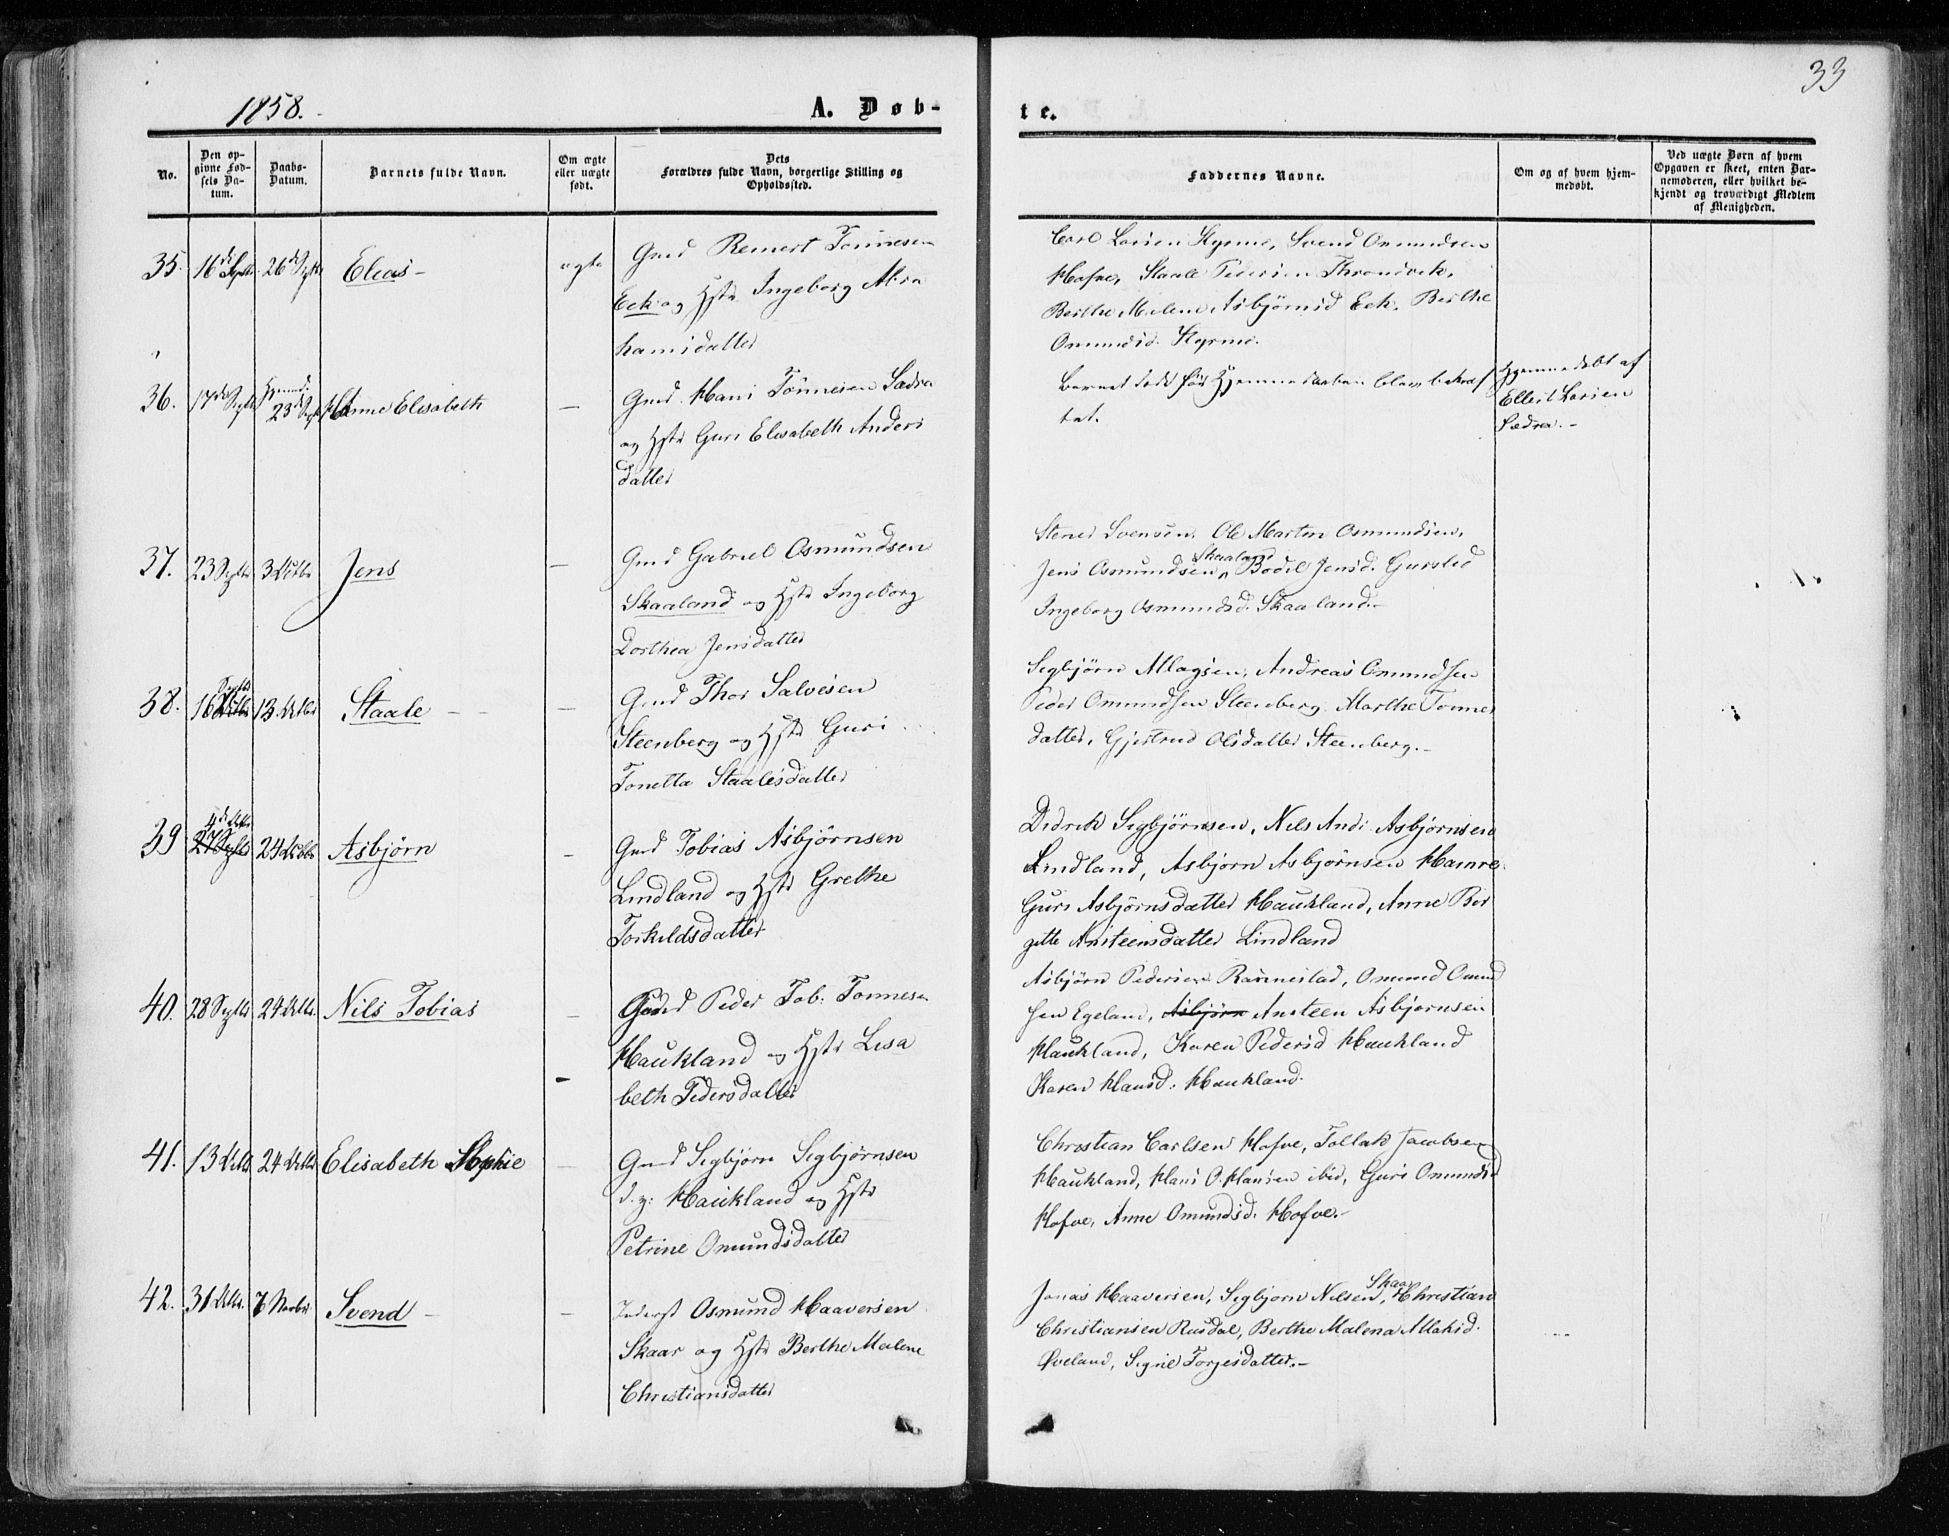 1858.
A. Døb-
te.
33
No.
Den op-
givne Fød-
sels Da-
tum.
Daabs-
Datum.
Barnets fulde Navn.
Om ægte
eller uægte
født.
Dets
Forældres fulde Navn, borgerlige Stilling og
Opholdssted.
Faddernes Navne.
Om og af hvem hjem-
medøbt.
Ved uægte Børn af hvem
Opgaven er skeet, enten Bar-
nemoderen, eller hvilket be-
kjendt og troværdigt Medlem
af Menigheden.
35. 16de Septbr 26de Septbr Elias ægte
Gmd Reinert Tønnesen
Eek og Hstr Ingeborg Abra
hamsdatter
Carl Larsen Hyrme, Svend Omundsen
Hofve, Staale Pedersen Throndvik,
Berthe Malene Asbjörnsd Eek, Berthe
Omundsd. Hyrme.
36. 17de Septbr Hjemmed. 23de Septbr Hanne Elisabeth —
Gmd. Hans Tönnesen Sædra
og Hstr Guri Elisabeth Anders
datter
Barnet døde før Hjemmedaaben blev bekræf
tet.
Hjemmedøbt af
Ellert Larsen
Sædra. -
37. 23 Septbr 3 Octbr Jens —
Gmd Gabriel Osmundsen
Skaaland og Hstr Ingeborg
Dorthea Jensdatter
Stener Svensen, Ole Martin Osmundsen,
Jens Osmundsen Skaaland, Bodil Jensd. Gursled
Ingeborg Osmundsd. Skaaland. -
38. 16 Septbr 13. Octbr Staale —
Gmd Thor Salvesen
Steenberg og Hstr Guri
Tonetta Staalesdatter
Sigbjörn Atlagsen, Andreas Omundsen
Peder Omundsen Steenberg, Marthe Tönnes
datter, Gjertrud Olsdatter Steenberg. -
39 4de Octbr 27 Septbr 24 Octbr Asbjörn —
Gmd Tobias Asbjörnsen
Lindland og Hstr Grethe
Torkildsdatter
Didrik Sigbjörnsen, Nils Andr. Asbjörnsen
Lindland, Asbjörn Asbjörnsen Hamre
Guri Asbjörnsdatter Haukland, Anne Bir
gitte Ansteensdatter Lindland
40. 28 Septbr 24 Octbr. Nils Tobias —
Gmd Peder Tob: Tonnesen
Haukland og Hstr Lisa
beth Pedersdatter
Asbjörn Pedersen Rannestad, Omund Omund
sen Egeland, Asbjörn Ansteen Asbjornsen
Haukland, Karen Pedersd Haukland
Karen Hansd. Haukland.
41. 13 Octbr 24 Octbr Elisabeth Sophie —
Gmd Sigbjörn Sigbjörnsen
d. y: Haukland og Hstr
Petrine Omundsdatter
Christian Carlsen Hofve, Tollak Jacobsen
Haukland, Hans O. Hansen ibid, Guri Omundsd
Hofve, Anne Omundsd. Hofve. -
42. 31 Octbr. 7 Novbr Svend —
Inderst Osmund Haaversen
Skaar og Hstr Berthe Malene
Christiansdatter
Jonas Haaversen, Sigbjorn Nilsen Skaar, Christian
Christiansen Rusdal, Berthe Malena Atlaksd.
Øveland, Signe Torjesdatter. -